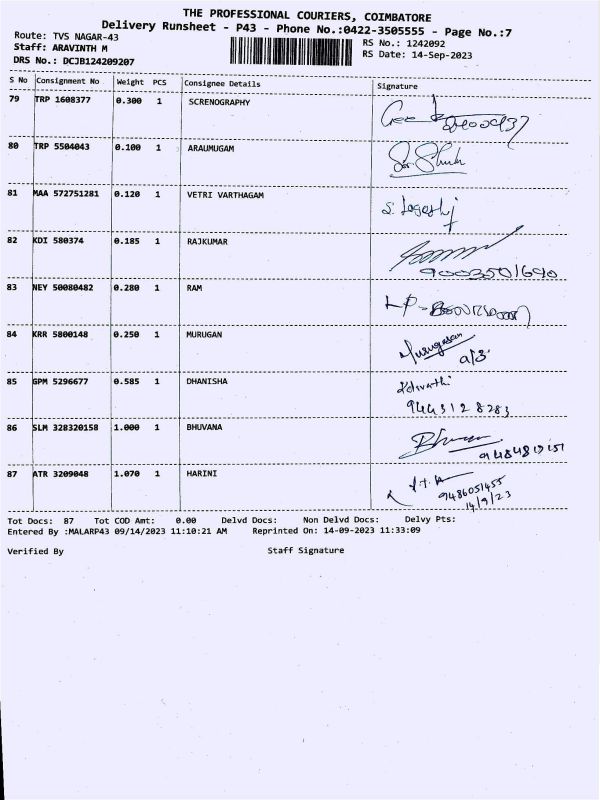 THE PROFESSIONAL COURIERS, COIMBATORE
Delivery Runsheet - P43 - Phone No.:0422-3505555 - Page No.:7
Route: TVS NAGAR-43 RS No.: 1242092
Staff: ARAVINTH M RS Date: 14-Sep-2023
DRS No.: DCJB124209207
S No Consignment No Weight PCS Consignee Details Signature
79 TRP 1608377 0.300 1 SCRENOGRAPHY
80 TRP 5504043 0.100 1 ARAUMUGAM
81 MAA 572751281 0.120 1 VETRI VARTHAGAM
82 KDI 580374 0.185 1 RAJKUMAR
9003501690
83 NEY 50080482 0.280 1 RAM
84 KRR 5800148 0.250 1 MURUGAN Murugesan
85 GPM 5296677 0.585 1 DHANISHA
9443128283
86 SLM 328320158 1.000 1 BHUVANA
87 ATR 3209048 1.070 1 HARINI
9486051455
14/9/23
Tot Docs: 87 Tot COD Amt: 0.00 Delvd Docs: Non Delvd Docs: Delvy Pts:
Entered By :MALARP43 09/14/2023 11:10:21 AM Reprinted On: 14-09-2023 11:33:09
Verified By Staff Signature